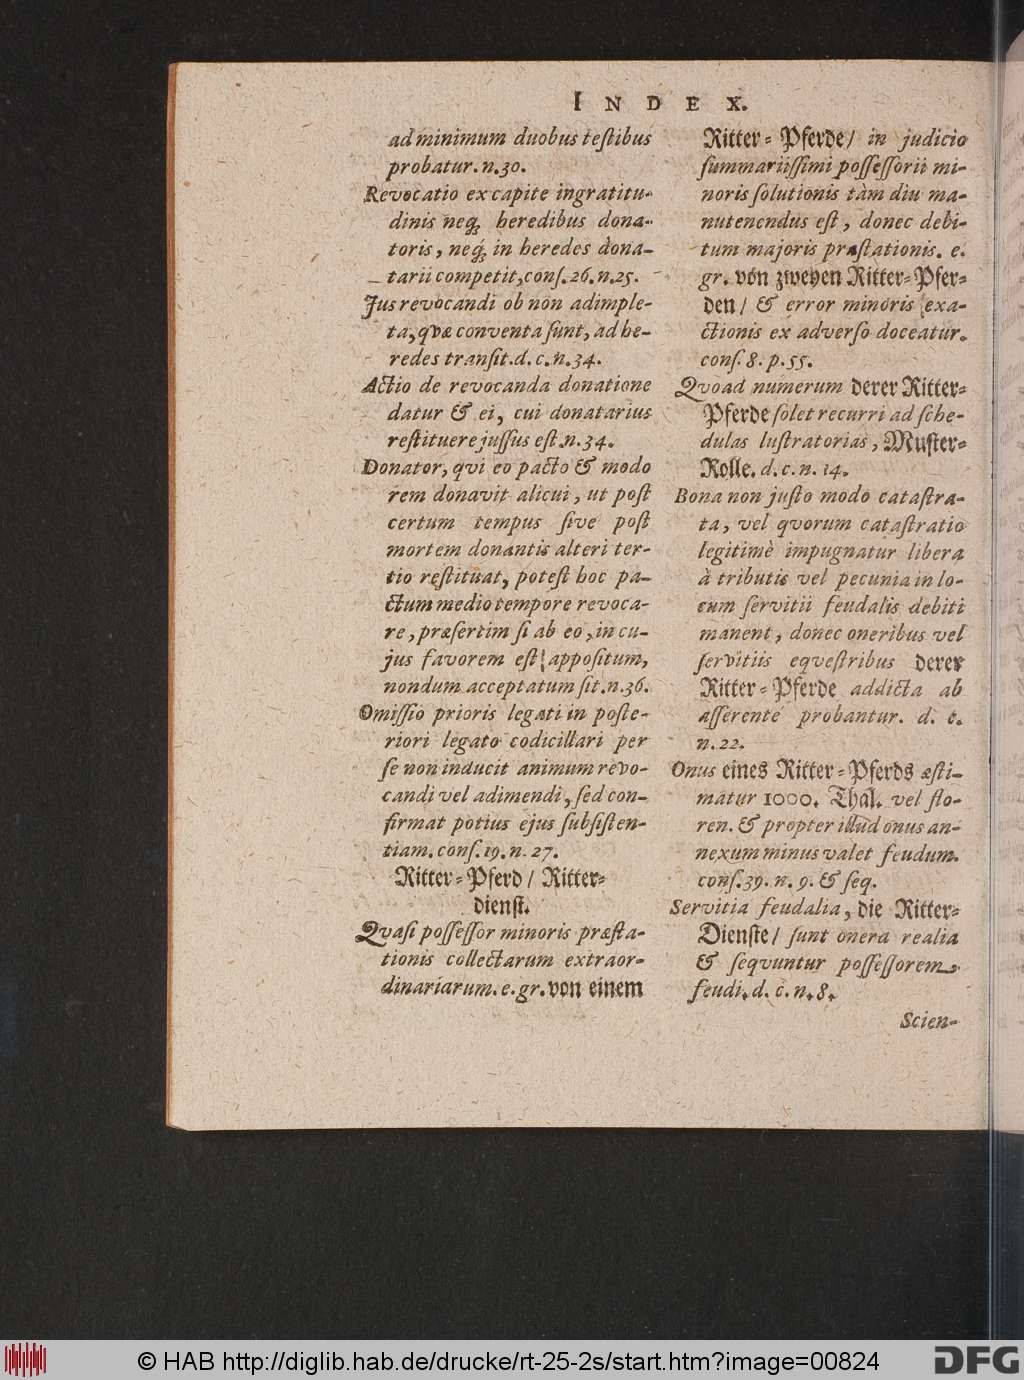 INDEX.
ad minimum duobus teſtibus
probatur. n. 30.
Revocatio ex capite ingratitu-
dinis neq́; heredibus dona-
toris, neq́; in heredes dona-
tarii competit, conſ. 26. n. 25.
Jus revocandi ob non adimple-
ta, qvæ conventa ſunt, ad he-
redes tranſit. d. c. n. 34.
Actio de revocanda donatione
datur & ei, cui donatarius
reſtituere juſſus eſt. n. 34.
Donator, qvi eo pacto & modo
rem donavit alicui, ut poſt
certum tempus ſive poſt
mortem donantis alteri ter-
tio reſtituat, poteſt hoc pa-
ctum medio tempore revoca-
re, præſertim ſi ab eo, in cu-
jus favorem eſt appoſitum,
nondum acceptatum ſit. n. 36.
Omiſſio prioris legati in poſte-
riori legato codicillari per
ſe non inducit animum revo-
candi vel adimendi, ſed con-
firmat potius ejus ſubſiſten-
tiam. conſ. 19. n. 27.
Ritter-Pferd / Ritter-
dienſt.
Qvaſi poſſeſſor minoris præſta-
tionis collectarum extraor-
dinariarum. e. gr. von einem
Ritter-Pferde / in judicio
ſummariiſſimi poſſeſſorii mi-
noris ſolutionis tàm diu ma-
nutenendus eſt, donec debi-
tum majoris præſtationis. e.
gr. von zweyen Ritter-Pfer-
den / & error minoris exa-
ctionis ex adverſo doceatur.
conſ. 8. p. 55.
Qvoad numerum derer Ritter-
Pferde ſolet recurri ad ſche-
dulas luſtratorias, Muſter-
Rolle. d. c. n. 14.
Bona non juſto modo cataſtra-
ta, vel qvorum cataſtratio
legitimè impugnatur libera
à tributis vel pecunia in lo-
cum ſervitii feudalis debiti
manent, donec oneribus vel
ſervitiis eqveſtribus derer
Ritter-Pferde addicta ab
aſſerente probantur. d. c.
n. 22.
Onus eines Ritter-Pferds æſti-
matur 1000. Thal. vel flo-
ren. & propter illud onus an-
nexum minus valet feudum.
conſ. 39. n. 9. & ſeq.
Servitia feudalia, die Ritter-
Dienſte / ſunt onera realia
& ſeqvuntur poſſeſſorem
feudi. d. c. n. 8.
Scien-
© HAB http://diglib.hab.de/drucke/rt-25-2s/start.htm?image=00824
DFG